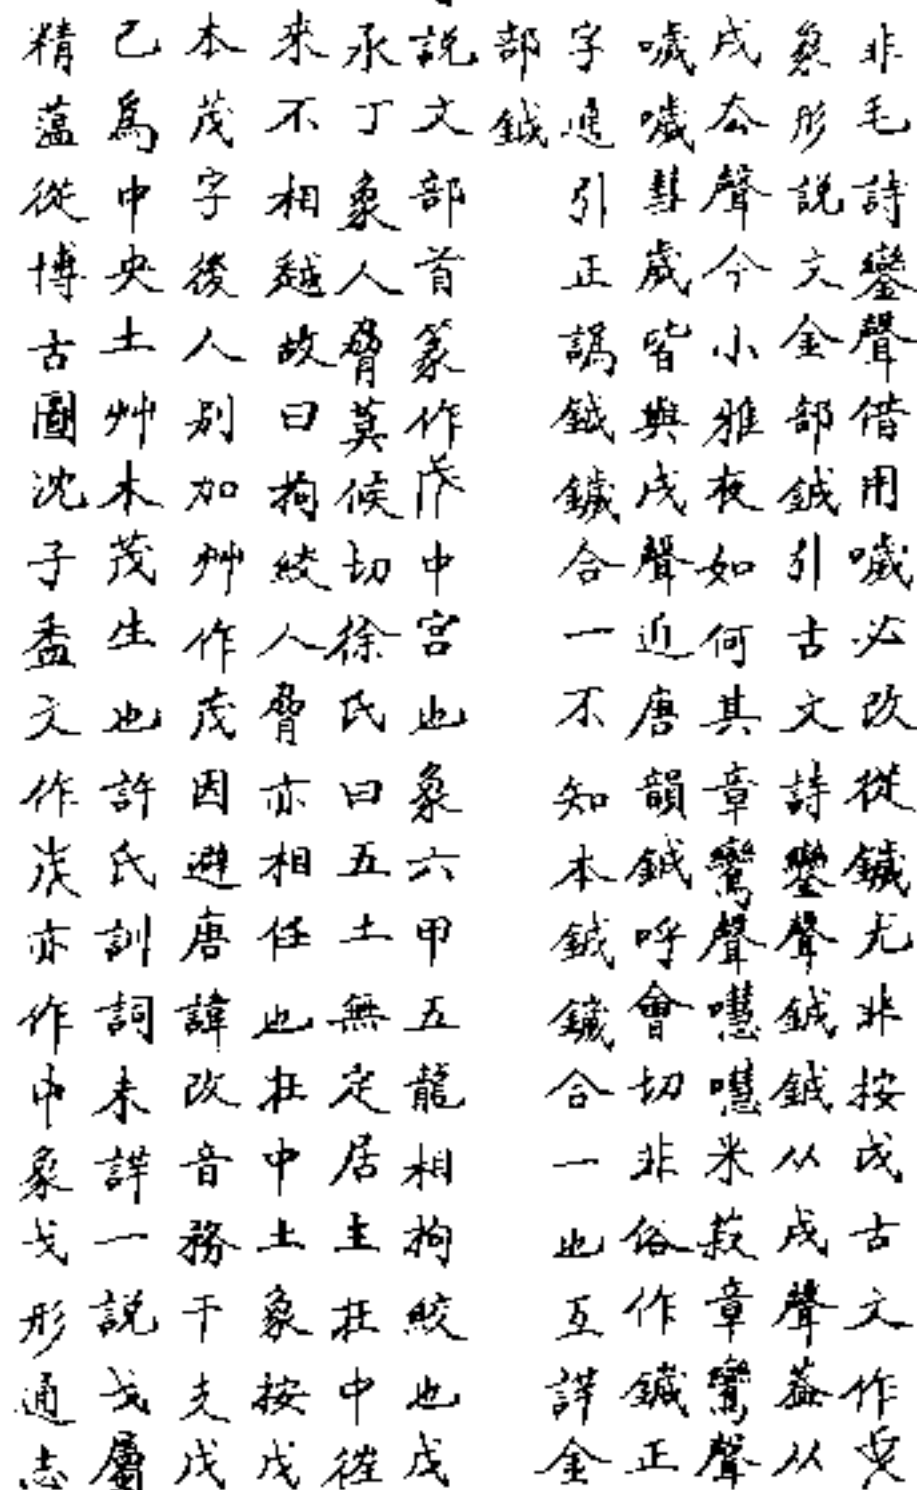 非毛詩鑾聲借用噦必改從鐬尤非按戉古文作
象形說文金部鉞引古文詩鑾聲鉞鉞从戉聲葢从
戌厺聲今小雅夜如何其章鸞聲嘒嘒采菽章鸞聲
噦噦彗歲皆與戌聲近唐韻鉞呼會切非俗作鐬正
字通引正譌鉞鐬合一不知本鉞鐬合一也互詳金
部鉞
說文部首篆作戊中宮也象六甲五龍相拘絞也戊
承丁象人脅莫候切徐氏曰五土無定居主在中徃
来不相越故曰拘絞人脅亦相任也在中土象按戊
本茂字後人别加艸作茂因避唐諱改音務干支戊
己為中央土艸木茂生也許氏訓詞未詳一說戈屬
精薀從博古圖沈子盉文作戊亦作中象戈形通志